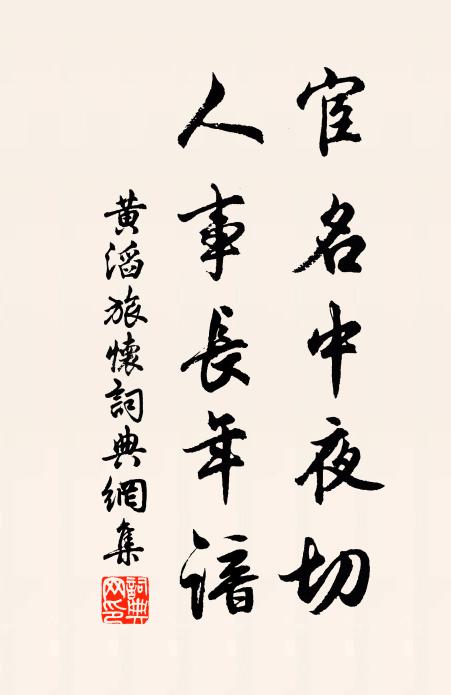 宦名中夜切
人事長年諳
黃滔旅懷詞典網集
詞典网印